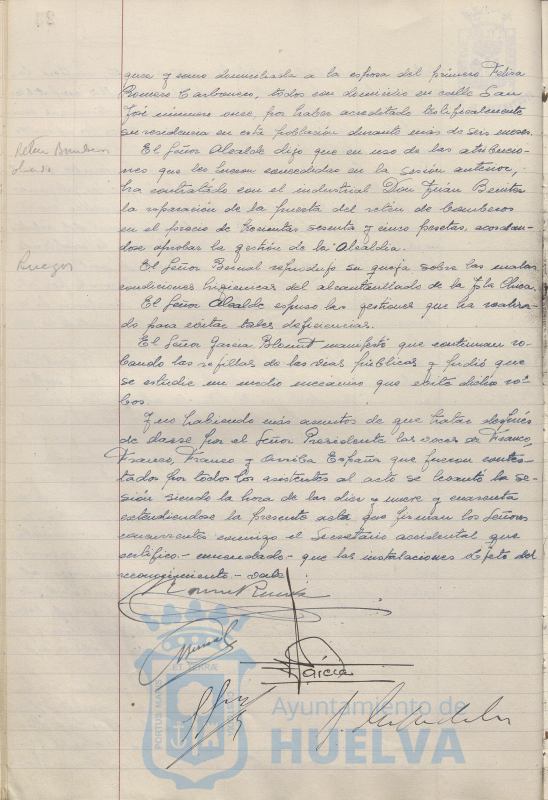 gura y como domiciliada a la esposa del primero Felisa
Romero Carbonero, todos con domicilio en calle San
José número once, por haber acreditado testificalmente
su residencia en esta población durante más de seis meses.
Reten Bomberos
El Señor Alcalde dijo que en uso de las atribucio-
nes que les fueron concedidas en la sesión anterior,
ha contratado con el industrial Don Juan Benitez
la reparación de la puerta del retén de bomberos
en el precio de trescientas sesenta y cinco pesetas, acordan-
dose aprobar la gestión de la Alcaldia.
Ruegos
El Señor Bernal reprodujo su queja sobre las malas
condiciones higienicas del alcantarillado de la Isla Chica.
El Señor Alcalde expuso las gestiones que ha realiza-
do para evitar tales deficiencias.
El Señor Garcia manifestó que continuan ro-
bando las rejillas de las vias públicas y pidió que
se estudie un medio mecanico que evite dichos ro-
bos.
Y no habiendo más asuntos de que tratar después
de darse por el Señor Presidente las voces de Franco,
Franco, Franco y Arriba España que fueron contes-
tados por todos los asistentes al acto se levantó la se-
sión siendo la hora de las diez y nueve y cuarenta
extendiendose la presente acta que firman los Señores
concurrentes conmigo el Secretario accidental que
certifico.- enmendado - que las instalaciones objeto del
reconocimiento - vale
Bernal
García
PORTUS MARIS
ET TERRAE
CUSTODIA
Ayuntamiento de
HUELVA